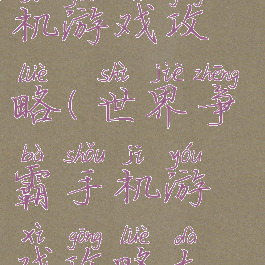 机游戏攻
lüè shì jiè zhēng
略(世界争
bà shǒu jī yóu
霸手机游
xì gōng lüè dà
戏攻略大